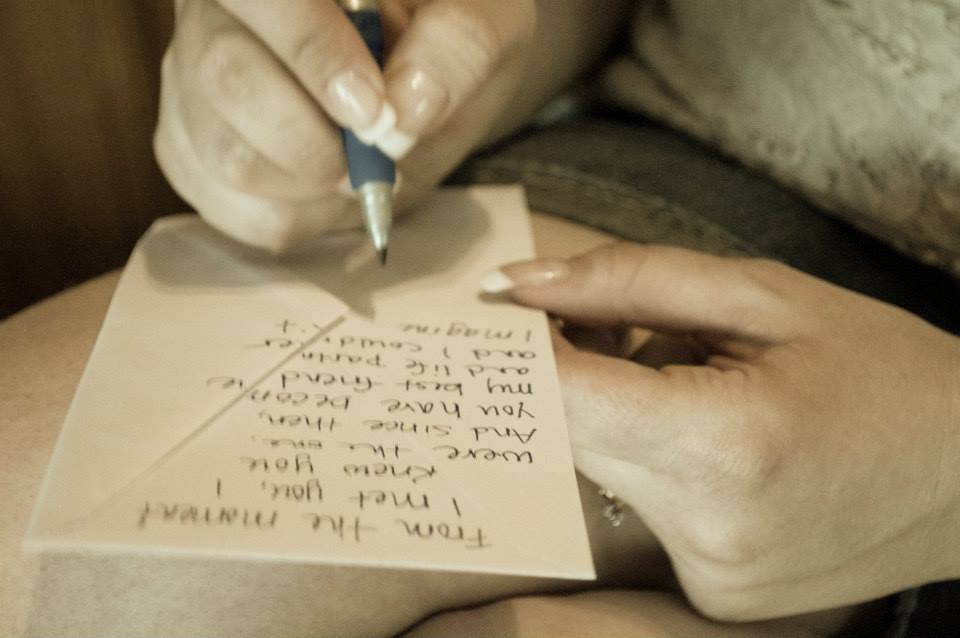 From the moment
I met you, I
knew you
were the one.
And since then,
you have become
my best friend
and life partner
and I couldn't
imagine